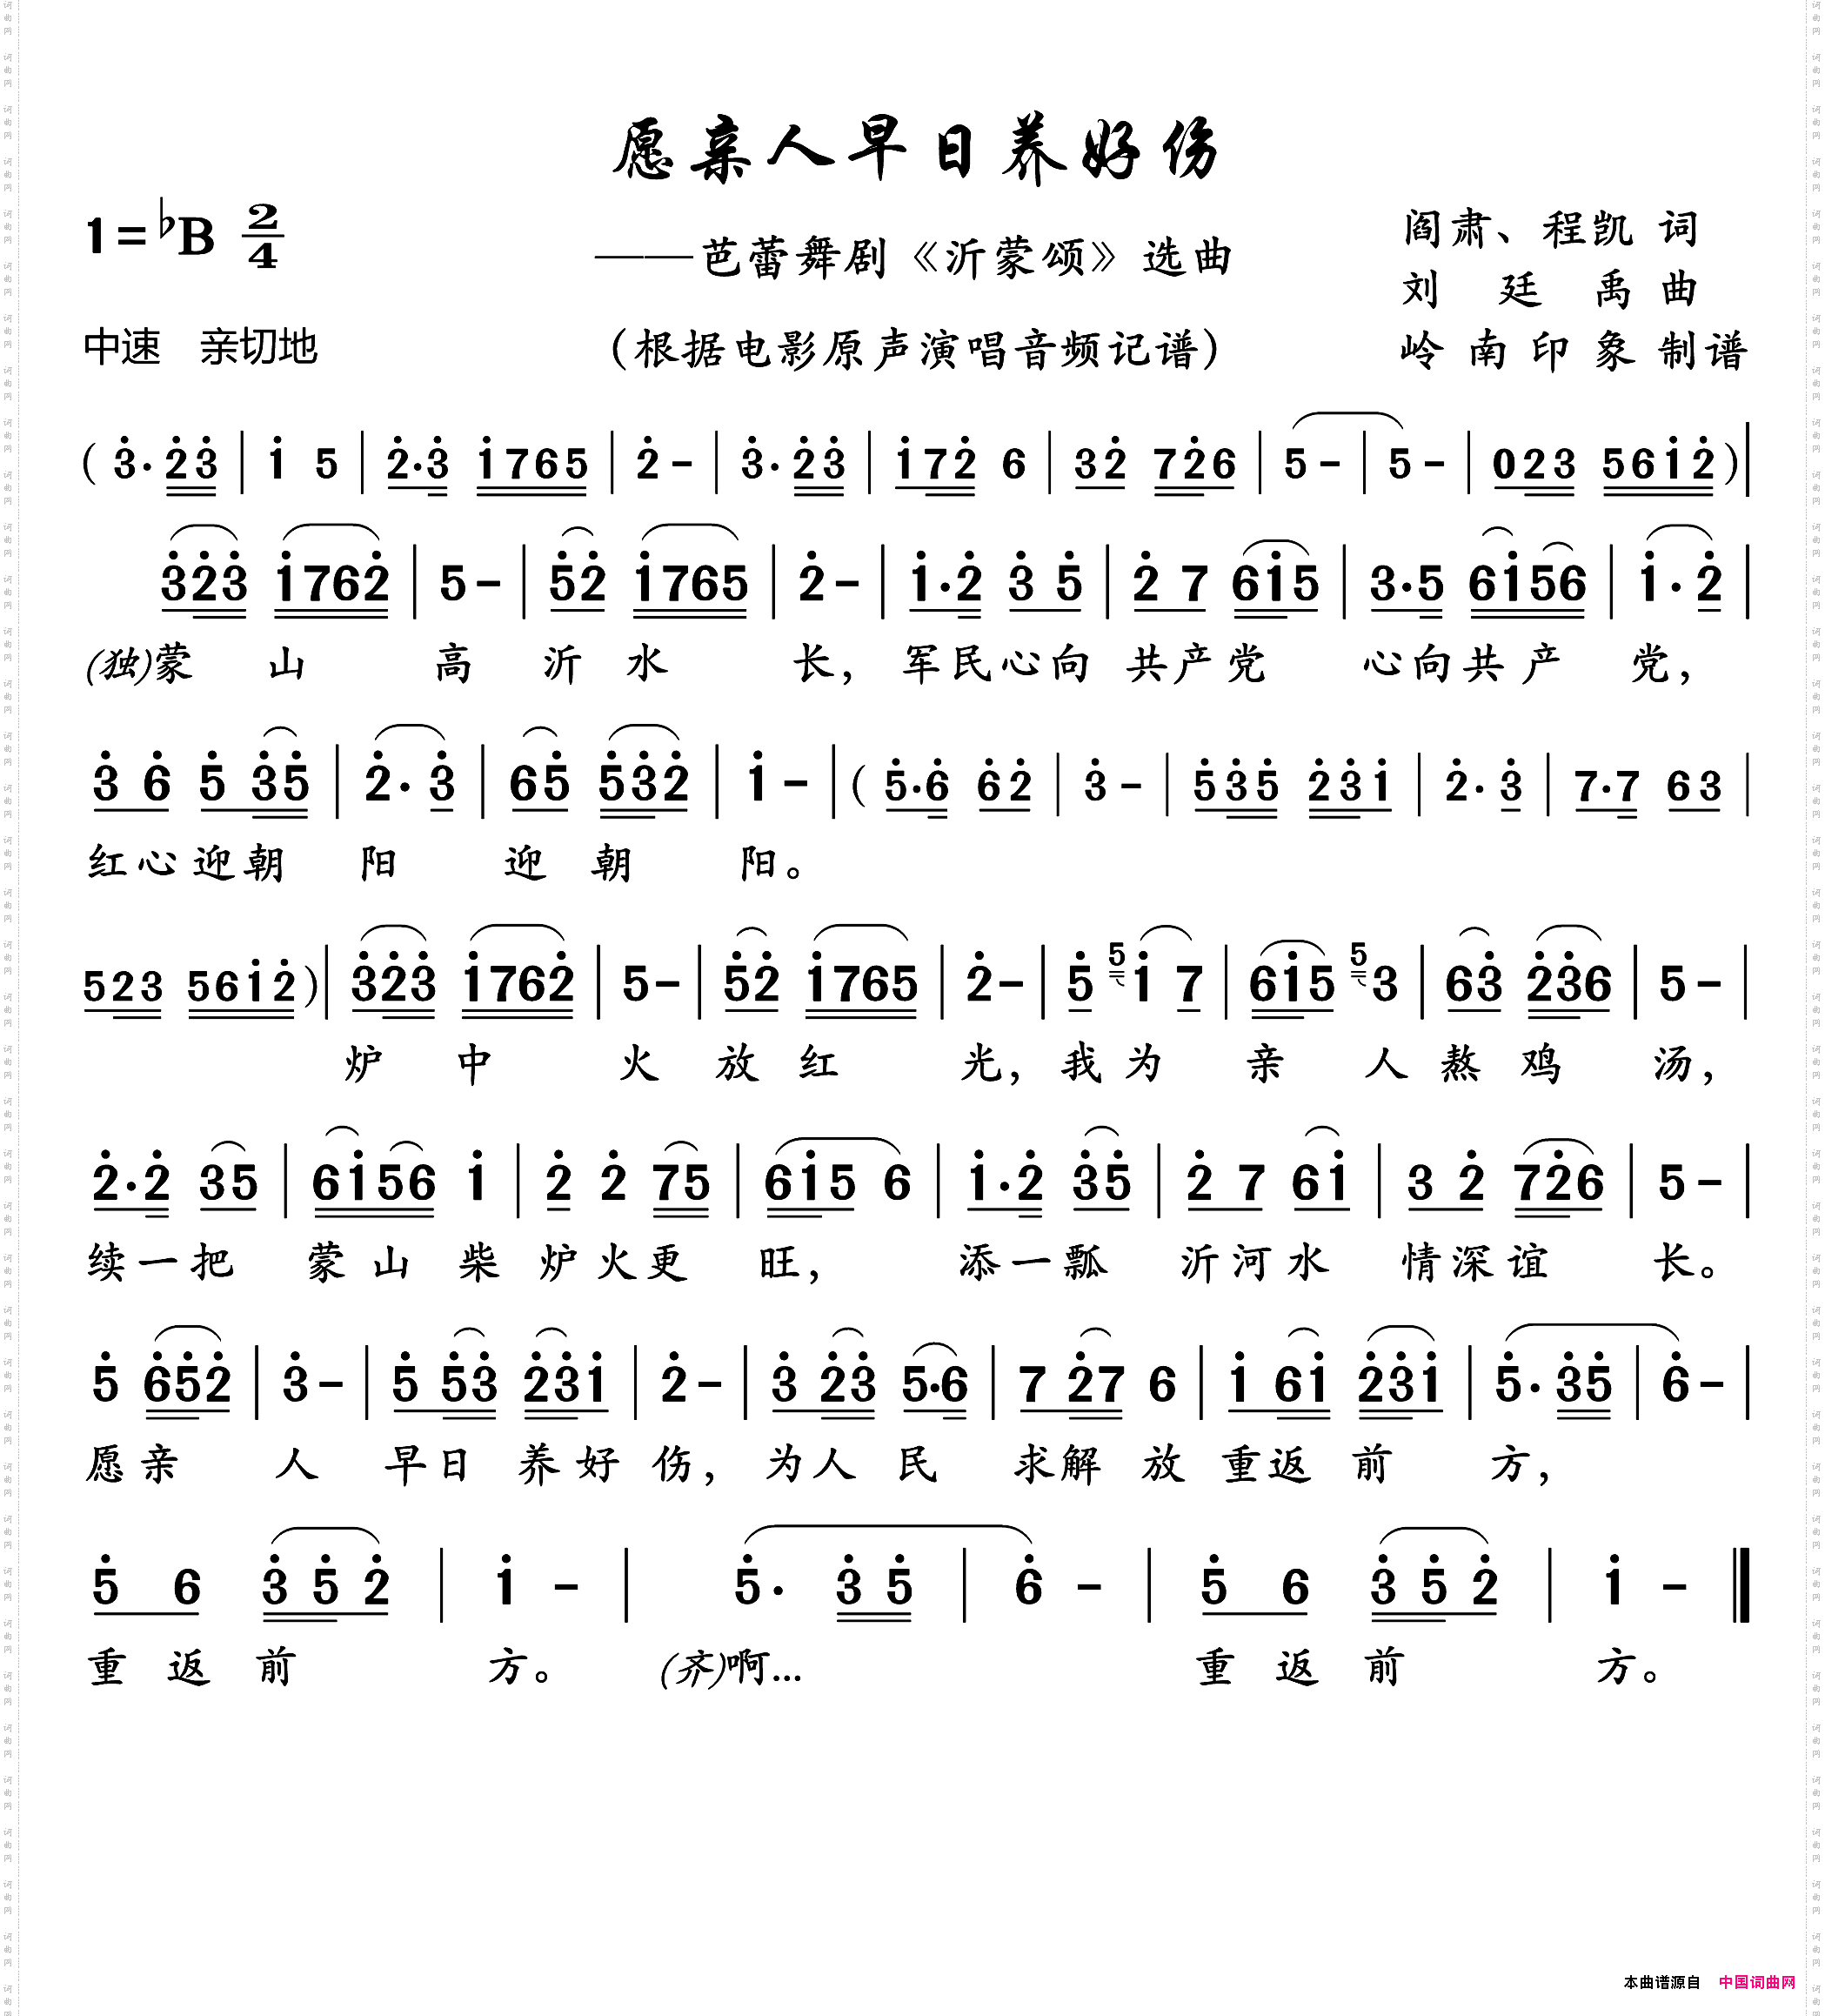 愿亲人早日养好伤
1=♭B 2/4
——芭蕾舞剧《沂蒙颂》选曲
阎肃、程凯 词
刘 廷 禹 曲
中速 亲切地
（根据电影原声演唱音频记谱）
岭南印象 制谱
( 3̇· 2̇3̇ | 1̇ 5 | 2̇·3̇ 1̇765 | 2̇ - | 3̇· 2̇3̇ | 1̇72̇ 6 | 32̇ 72̇6 | 5 - | 5 - | 023 561̇2̇ )|
3̇2̇3̇ 1̇762̇ | 5 - | 5̇2̇ 1̇765 | 2̇ - | 1̇·2̇ 3̇ 5̇ | 2̇ 7 61̇5 | 3·5̇ 61̇56 | 1̇· 2̇ |
(独)蒙 山 高 沂 水 长，军民心向 共产党 心向共产 党，
3̇ 6̇ 5̇ 3̇5̇ | 2̇· 3̇ | 65̇ 5̇3̇2̇ | 1̇ - | ( 5̇·6̇ 6̇2̇ | 3̇ - | 5̇3̇5̇ 2̇3̇1̇ | 2̇· 3̇ | 7·7̇ 63 |
红心迎朝 阳 迎 朝 阳。
523 561̇2̇ )| 3̇2̇3̇ 1̇762̇ | 5 - | 5̇2̇ 1̇765 | 2̇ - | 5̇ 5 1̇ 7 | 61̇5 5 3 | 63̇ 2̇3̇6 | 5 - |
炉 中 火 放 红 光，我为 亲 人 熬 鸡 汤，
2̇·2̇ 35 | 61̇56 1̇ | 2̇ 2̇ 75 | 61̇5 6 | 1̇·2̇ 3̇5̇ | 2̇ 7 61̇ | 3 2̇ 72̇6 | 5 - |
续一把 蒙山 柴 炉火更 旺， 添一瓢 沂河水 情深谊 长。
5̇ 6̇5̇2̇ | 3̇ - | 5̇ 5̇3̇ 2̇3̇1̇ | 2̇ - | 3̇ 2̇3̇ 5·6 | 7 2̇7 6 | 1̇ 61̇ 2̇3̇1̇ | 5̇· 3̇5̇ | 6̇ - |
愿亲 人 早日 养好 伤，为人 民 求解 放 重返 前 方，
5̇ 6 3̇ 5̇ 2̇ | 1̇ - | 5̇· 3̇ 5̇ | 6̇ - | 5̇ 6 3̇ 5̇ 2̇ | 1̇ - ‖
重 返 前 方。 (齐)啊… 重 返 前 方。
本曲谱源自 中国词曲网